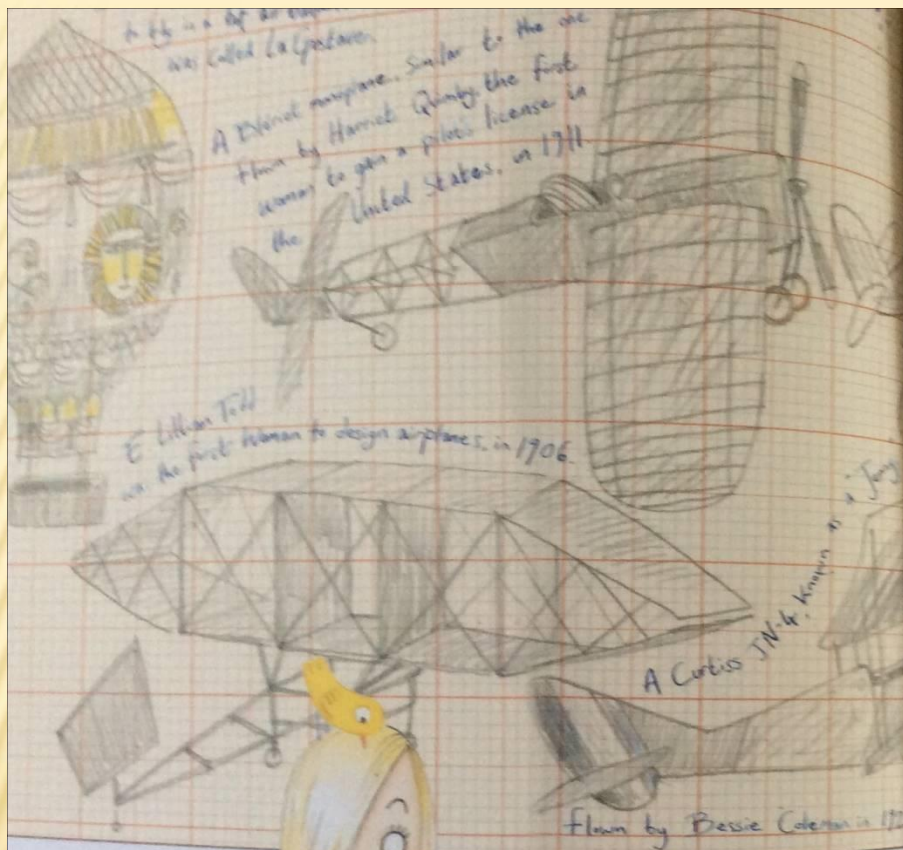 to fly in a hot air
was called La
A Blériot monoplane. Similar to the one
flown by Harriet Quimby, the first
woman to gain a pilot's license in
the United States, in 1911
E Lillian Todd
was the first woman to design airplanes, in 1906.
A Curtiss JN-4. Known as a 'Jenny
flown by Bessie Coleman in 192